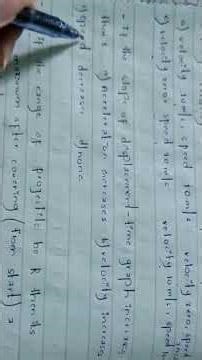 a) velocity 10m/s, speed 10m/s velocity zero, speed
c) velocity zero speed 10m/s velocity 10m/s, speed
- If the slope of displacement-time graph increases,
then :- a) Acceleration increases b) velocity increases
c) speed decreases d) none
- If the range of projectile be R then its
maximum after covering (from start) =